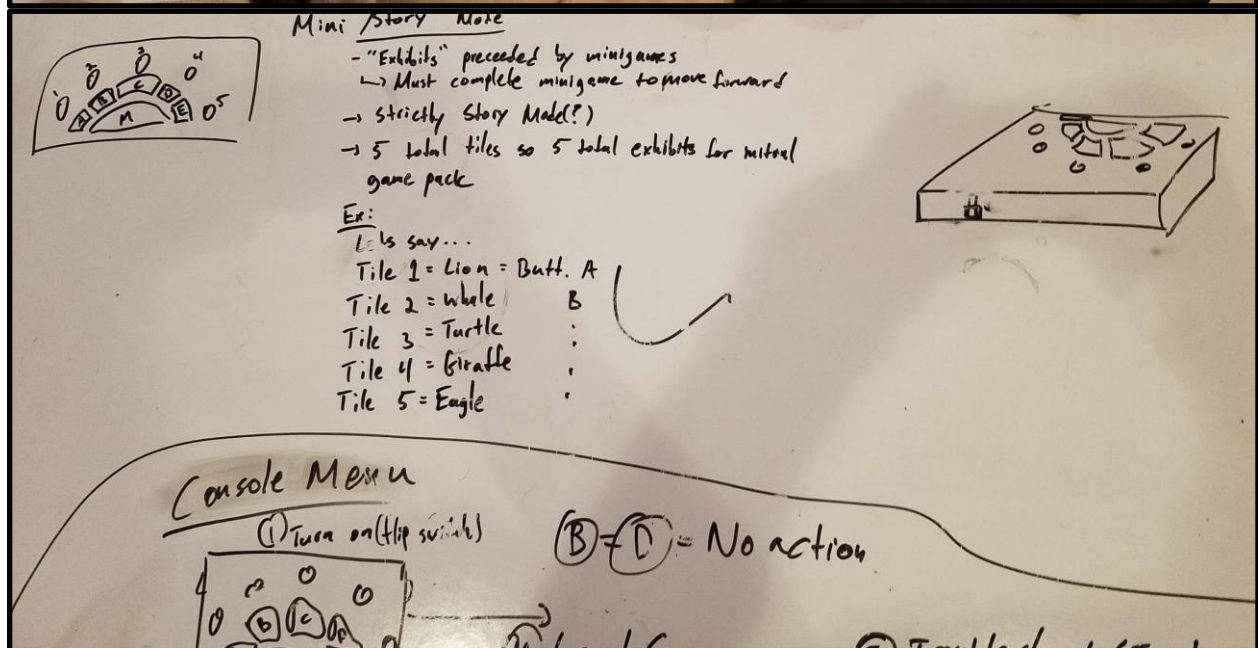 Mini Story Mode
- "Exhibits" preceeded by minigames
↳ Must complete minigame to move forward
→ Strictly Story Mode(?)
→ 5 total tiles so 5 total exhibits for
game pack
Ex:
Let's say...
Tile 1 = Lion = Butt. A
Tile 2 = Whale B
Tile 3 = Turtle
Tile 4 = Giraffe
Tile 5 = Eagle
1 2 3 4 5
A B C D E
M
Console Menu
① Turn on (flip switch)
B = D = No action
B C